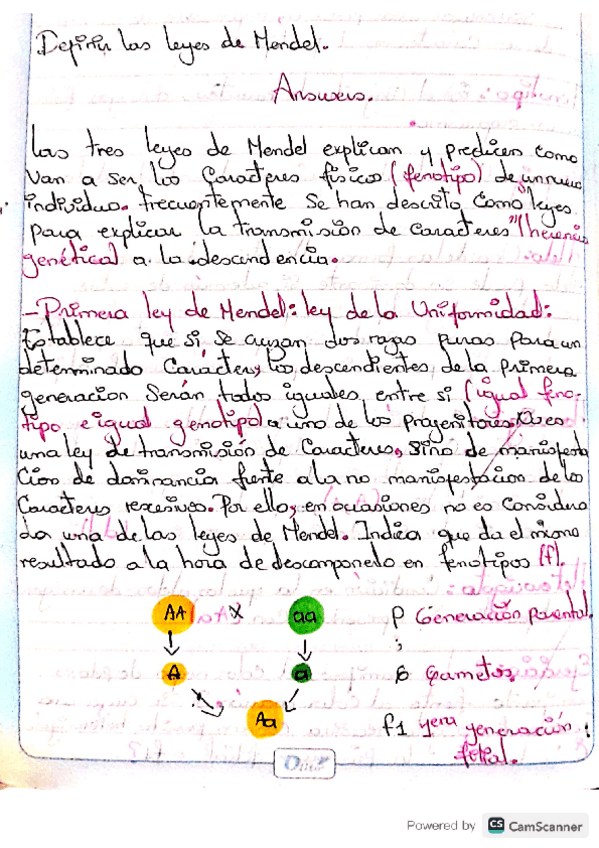 Definir las leyes de Mendel.
Answers.
Las tres leyes de Mendel explican y predicen como
Van a ser los Caracteres físicos (fenotipo) de un nuevo
individuo. frecuentemente Se han descrito Como "leyes
para explicar la transmisión de Caracteres" (herencia
genética) a la descendencia.
- Primera ley de Mendel: ley de la Uniformidad:
Establece que si se cruzan dos razas puras para un
determinado Carácter, los descendientes de la primera
generación Serán todos iguales entre si (igual feno-
tipo e igual genotipo) a uno de los progenitores. No es
una ley de transmisión de Caracteres, Sino de manifesta
Cion de dominancia frente a la no manifestacion de los
Caracteres recesivos. Por ello, en ocasiones no es Considera
da una de las leyes de Mendel. Indica que da el mismo
resultado a la hora de descomponerlo en fenotipos (f).
AA x aa P Generación parental.
;
A a G Gametos.
Aa f1 1era generación
filial.
Powered by CS CamScanner